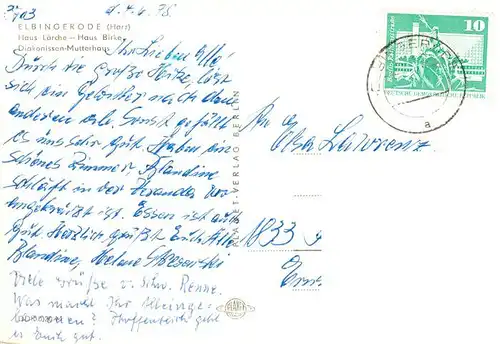 d. 4.6.78
ELBINGERODE (Harz)
Haus Lärche – Haus Birke
Diakonissen-Mutterhaus
Ihr Lieben Alle!
Durch die große Hitze, löst
sich ein Gewitter nach dem
anderen ab. Sonst gefällt
es uns sehr gut. Haben ein
schönes Zimmer. Blandine
schläft in der Veranda
ist. Essen ist auch
gut. Herzlich grüßt Euch Alle
Blandine,
Viele Grüße v. Schw. Renne.
Was macht Ihr
? Hoffentlich geht
es Euch gut.
PLANET-VERLAG BERLIN
PLANET
10
DEUTSCHE DEMOKRATISCHE REPUBLIK
a
An
Elsa Lawrenz
1833